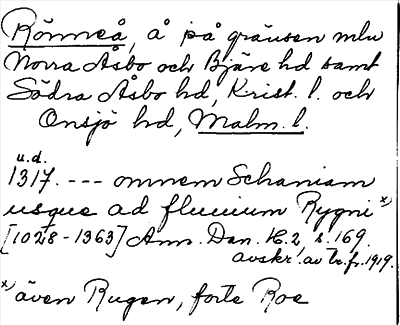 Rönneå, å på gränsen mlu
Norra Åsbo och Bjäre hd samt
Södra Åsbo hd, Krist. l. och
Onsjö hd, Malm. l.
u.d.
1317. --- omnem Schaniam
usque ad fluuium Rygni x)
[1028-1363] Ann. Dan. H. 2, s. 169.
avskr. av br. fr. 1919.
x) även Rugen, forte Roe